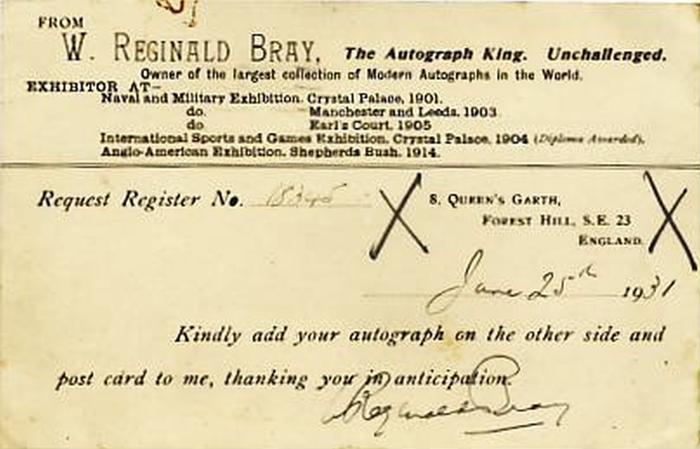 FROM
W. REGINALD BRAY, The Autograph King. Unchallenged.
Owner of the largest collection of Modern Autographs in the World.
EXHIBITOR AT—
Naval and Military Exhibition. Crystal Palace, 1901.
do. Manchester and Leeds. 1903
do Earl's Court. 1905
International Sports and Games Exhibition. Crystal Palace. 1904 (Diploma Awarded).
Anglo-American Exhibition. Shepherds Bush. 1914.
Request Register No.
8, QUEEN'S GARTH,
FOREST HILL, S.E. 23
ENGLAND.
June 25th 1931
Kindly add your autograph on the other side and
post card to me, thanking you in anticipation.
W Reginald Bray